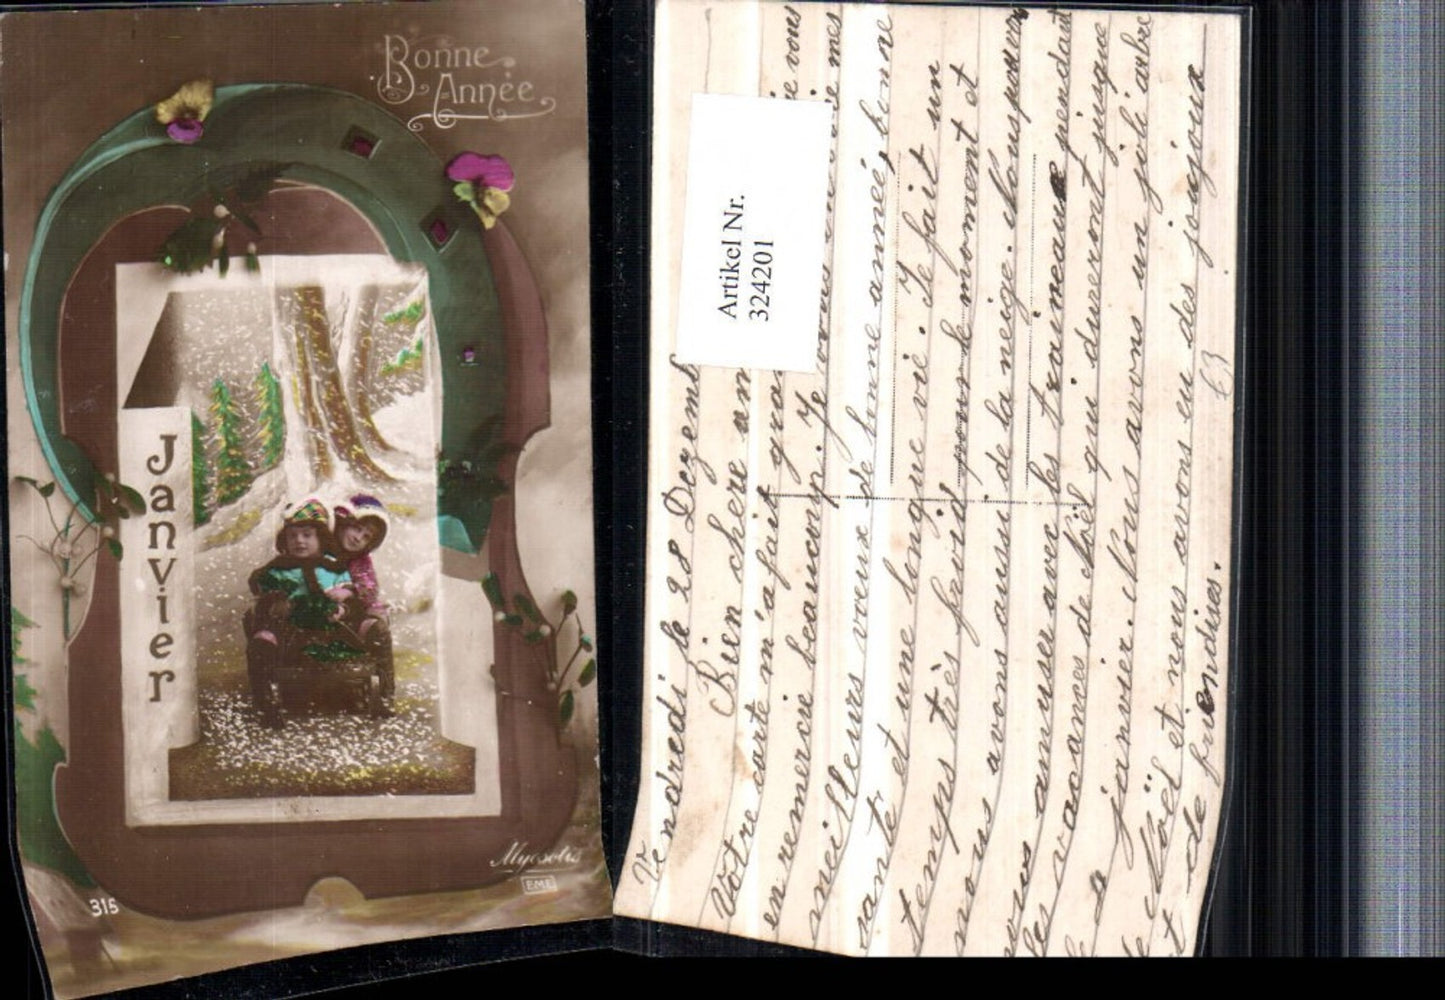 Bonne
Année
Janvier
Myosotis
EME
315
Artikel Nr.
324201
Vendredi le 28 Dezemb
Bien chère am
Votre carte m'a fait gra vous
en remercie beaucoup. Je vous mes
meilleurs vœux de bonne année, bonne
santé et une longue vie. Il fait un
temps tès froid pour le moment et
nous avons aussi de la neige. Nous pouvons
nous amuser avec les traineaux pendant
les vacances de Noël qui dureront jusque
janvier. Nous avons un joli arbre
de Noël et nous avons eu des joujoux
et de friendises.
63